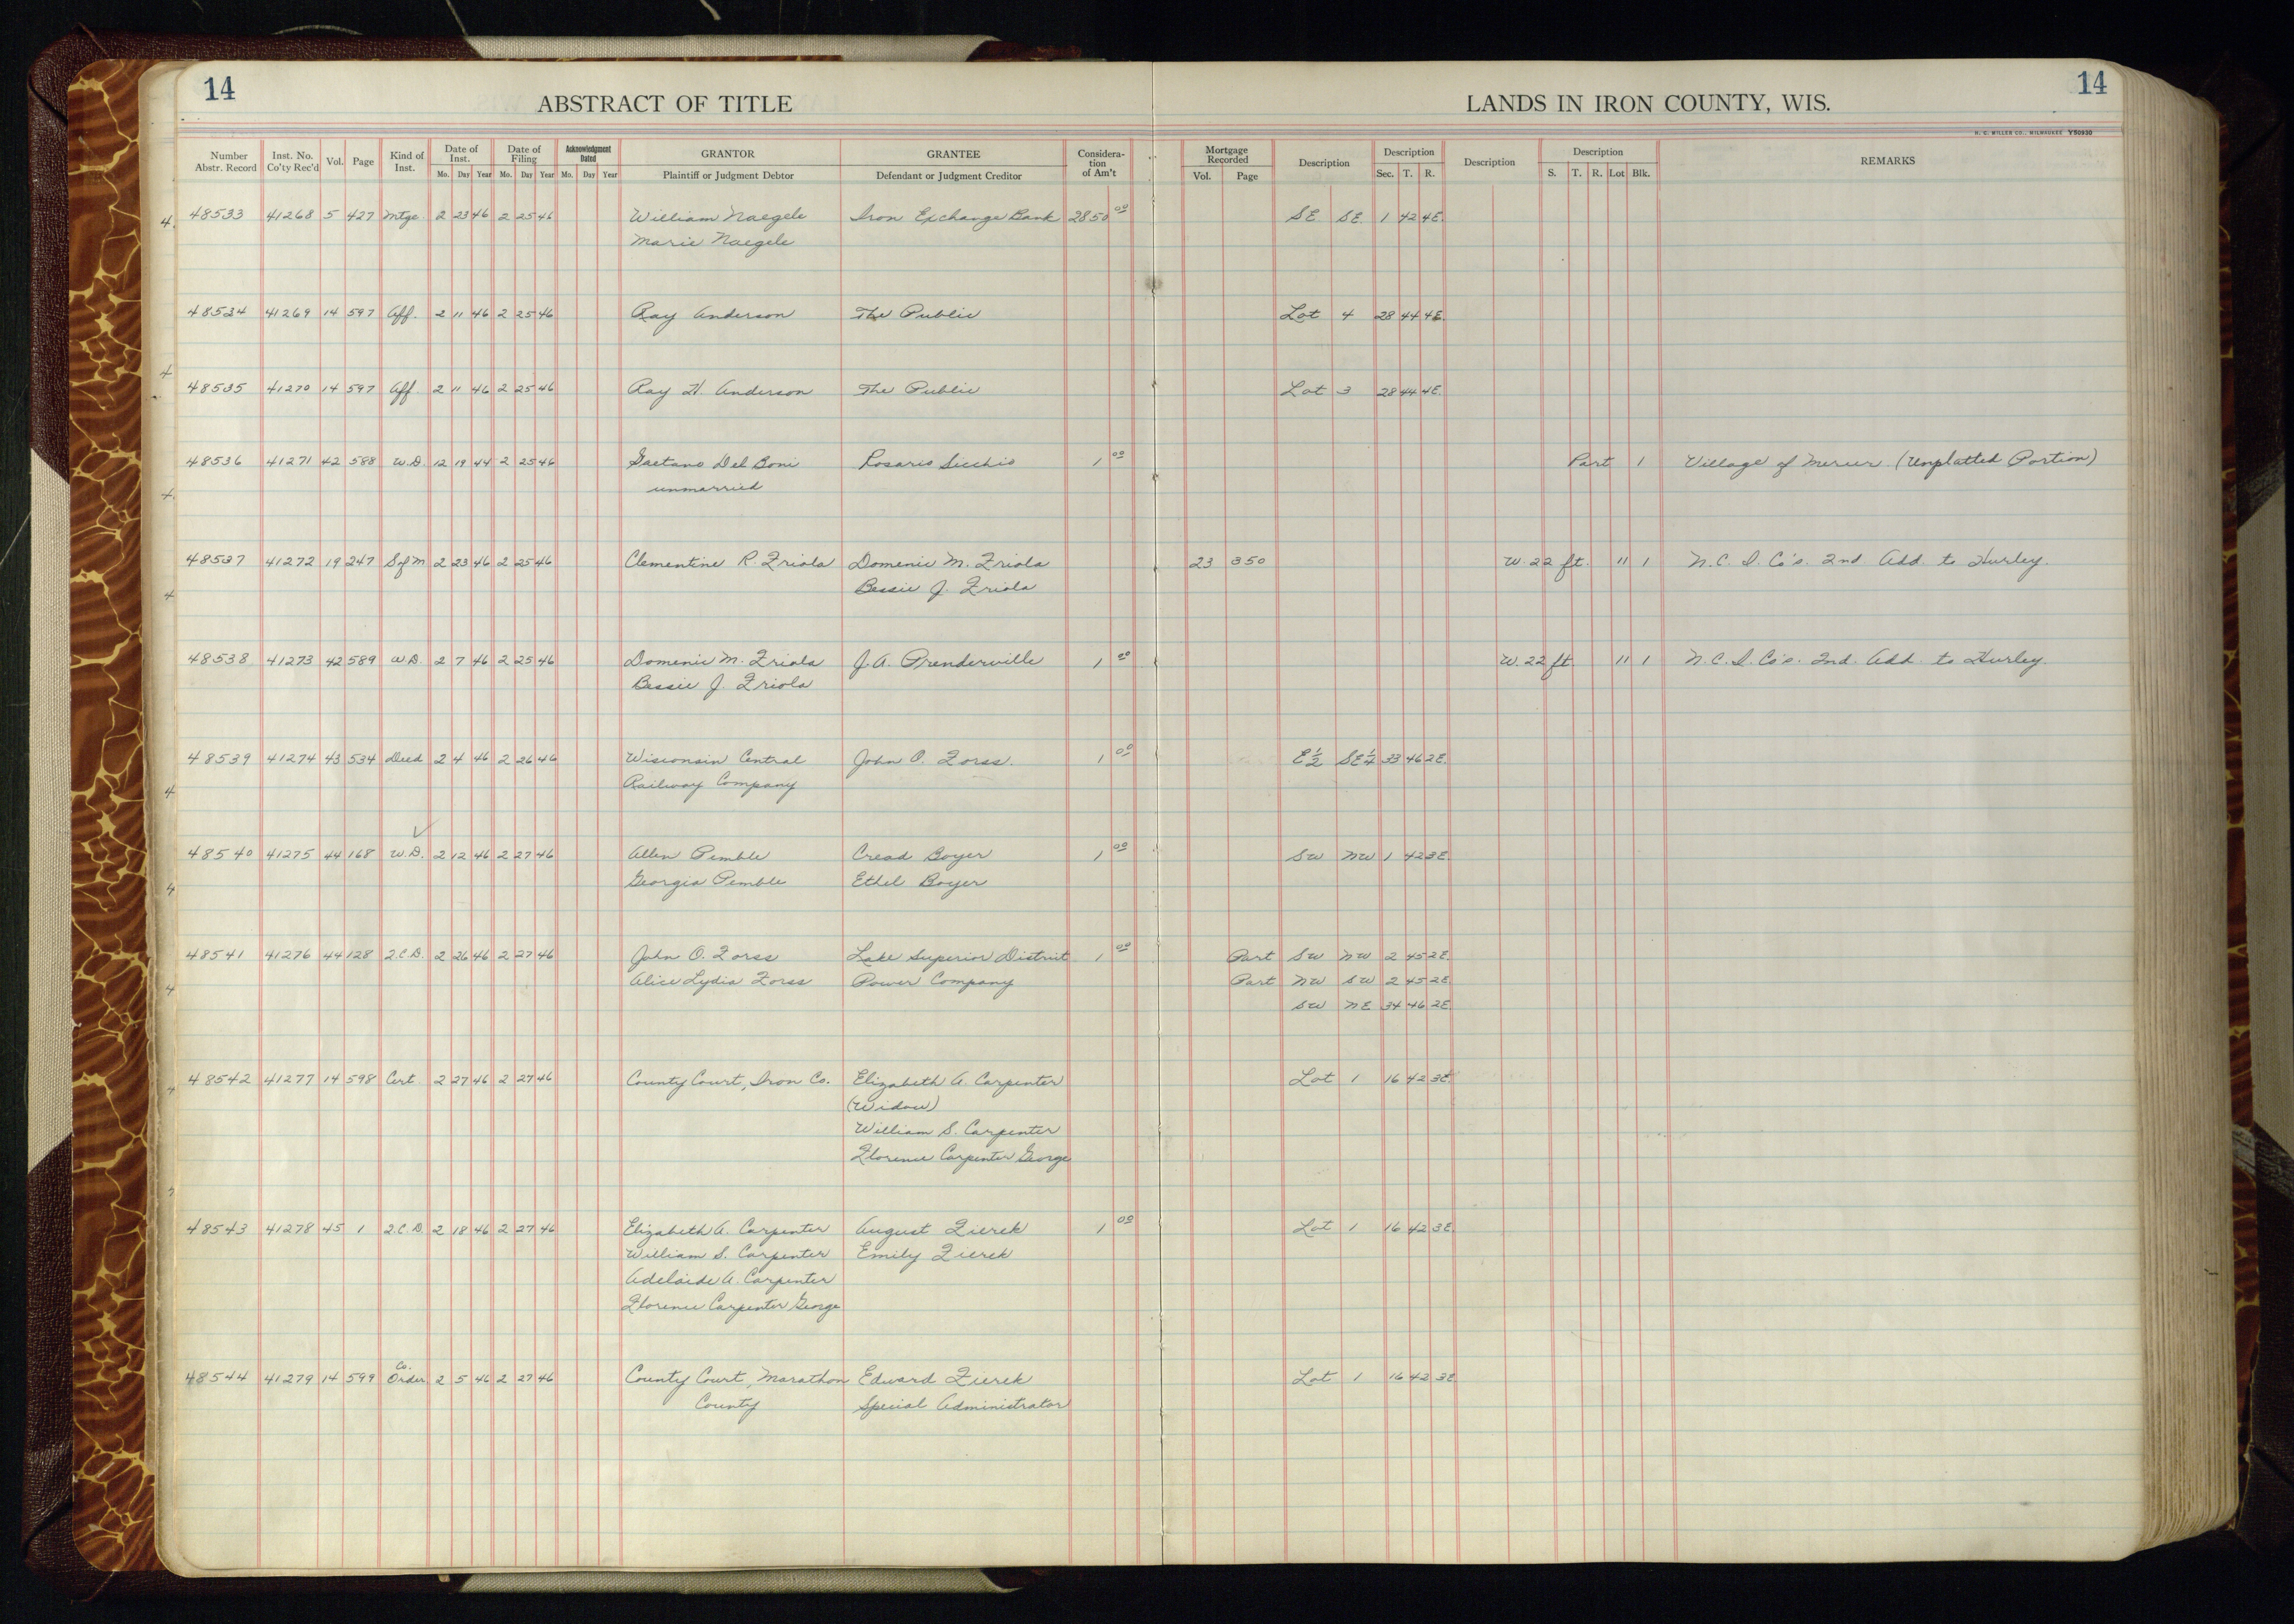 14 14
ABSTRACT OF TITLE LANDS IN IRON COUNTY, WIS.
H. C. MILLER CO., MILWAUKEE Y50930
Number Abstr. Record Inst. No. Co'ty Rec'd Vol. Page Kind of Inst. Date of Inst. Mo. Day Year Date of Filing Mo. Day Year Acknowledgment Dated Mo. Day Year GRANTOR Plaintiff or Judgment Debtor GRANTEE Defendant or Judgment Creditor Considera-tion of Am't Mortgage Recorded Vol. Page Description Description Sec. T. R. Description Description S. T. R. Lot Blk. REMARKS
48533 41268 5 427 Mtge. 2 23 46 2 25 46 William Naegele Iron Exchange Bank 2850 00 SE SE 1 42 4E.
Marie Naegele
48534 41269 14 597 Aff. 2 11 46 2 25 46 Ray Anderson The Public Lot 4 28 44 4E.
48535 41270 14 597 Aff. 2 11 46 2 25 46 Ray H. Anderson The Public Lot 3 28 44 4E.
48536 41271 42 588 W.D. 12 19 44 2 25 46 Gaetano Del Boni Rosario Secchio 1 00 Part 1 Village of Mercer (Unplatted Portion)
unmarried
48537 41272 19 247 S of M 2 23 46 2 25 46 Clementine R. Friola Domenic M. Friola 23 350 W. 22 ft. 11 1 N.C.I. Co's. 2nd Add. to Hurley.
Bessie J. Friola
48538 41273 42 589 W.D. 2 7 46 2 25 46 Domenic M. Friola J.A. Prenderville 1 00 W. 22 ft 11 1 N.C.I. Co's. 2nd. Add. to Hurley.
Bessie J. Friola
48539 41274 43 534 Deed 2 4 46 2 26 46 Wisconsin Central John O. Forss. 1 00 E½ SE¼ 33 46 2E.
Railway Company
48540 41275 44 168 W.D. 2 12 46 2 27 46 Allen Pemble Cread Boyer 1 00 SW NW 1 42 3E.
Georgia Pemble Ethel Boyer
48541 41276 44 128 2.C.D. 2 26 46 2 27 46 John O. Forss Lake Superior District 1 00 Part SW NW 2 45 2E.
Alice Lydia Forss Power Company Part NW SW 2 45 2E.
SW NE 34 46 2E.
48542 41277 14 598 Cert. 2 27 46 2 27 46 County Court, Iron Co. Elizabeth A. Carpenter Lot 1 16 42 3E.
(Widow)
William S. Carpenter
Florence Carpenter George
48543 41278 45 1 2.C.D. 2 18 46 2 27 46 Elizabeth A. Carpenter August Zierek 1 00 Lot 1 16 42 3E.
William S. Carpenter Emily Zierek
Adelaide A. Carpenter
Florence Carpenter George
48544 41279 14 599 Co. Order 2 5 46 2 27 46 County Court, Marathon Edward Zierek Lot 1 16 42 3E
County Special Administrator